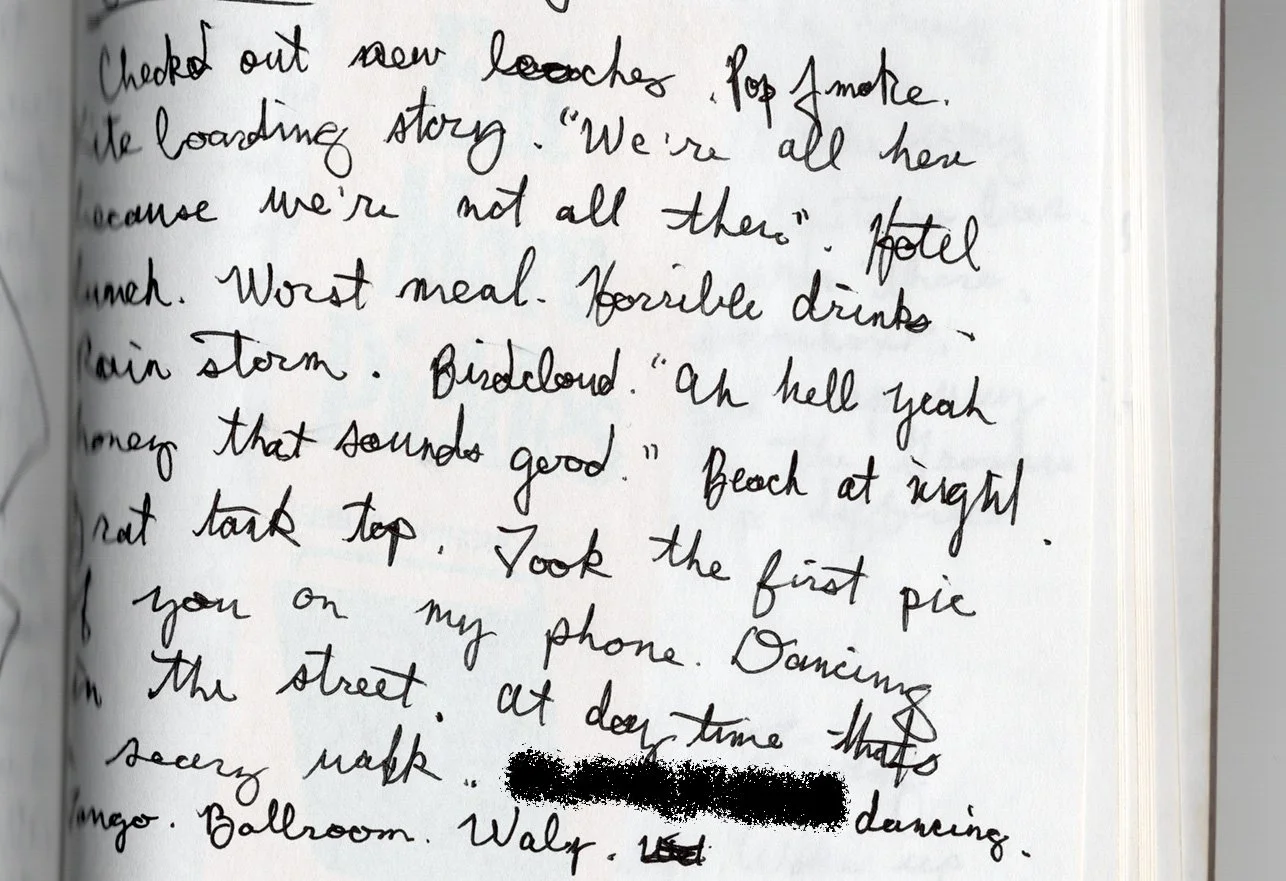 Checkd out new . Pop Smoke.
loading story. "We're all here
because we're not all there". Hotel
lunch. Worst meal. Horrible drinks.
Rain storm. Birdcloud. "Ah hell yeah
honey that sounds good." Beach at night.
tank top. Took the first pic
of you on my phone. Dancing
in the street. At day time thats
scary walk. dancing.
Tango. Ballroom. Walz.